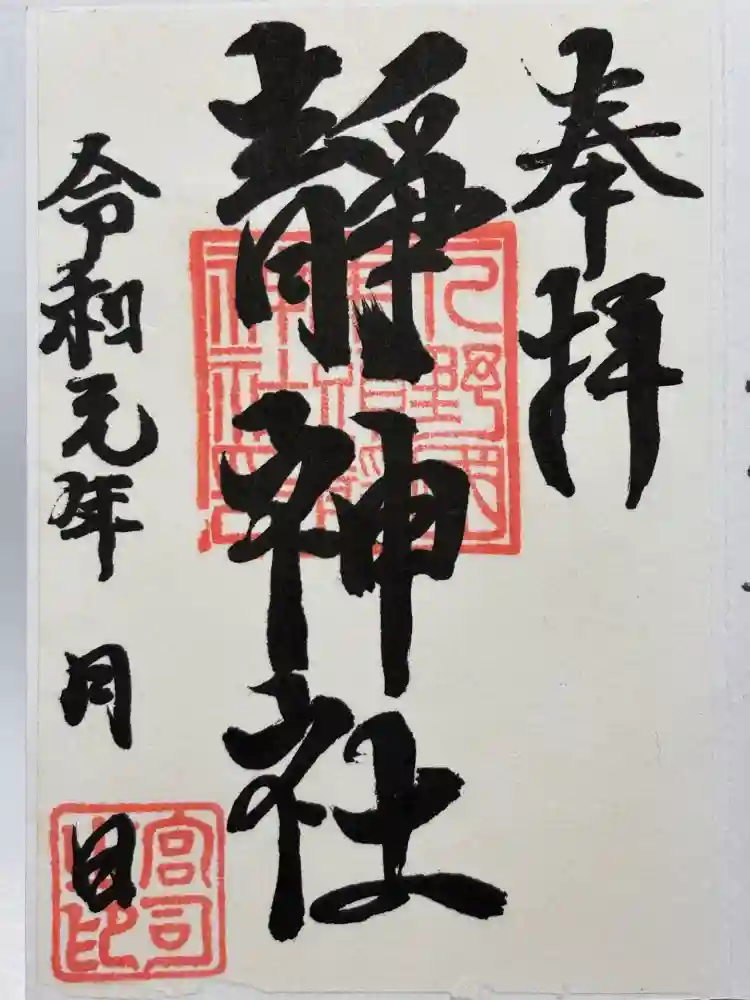 奉拝
静神社
令和元年 月 日
宮司之印